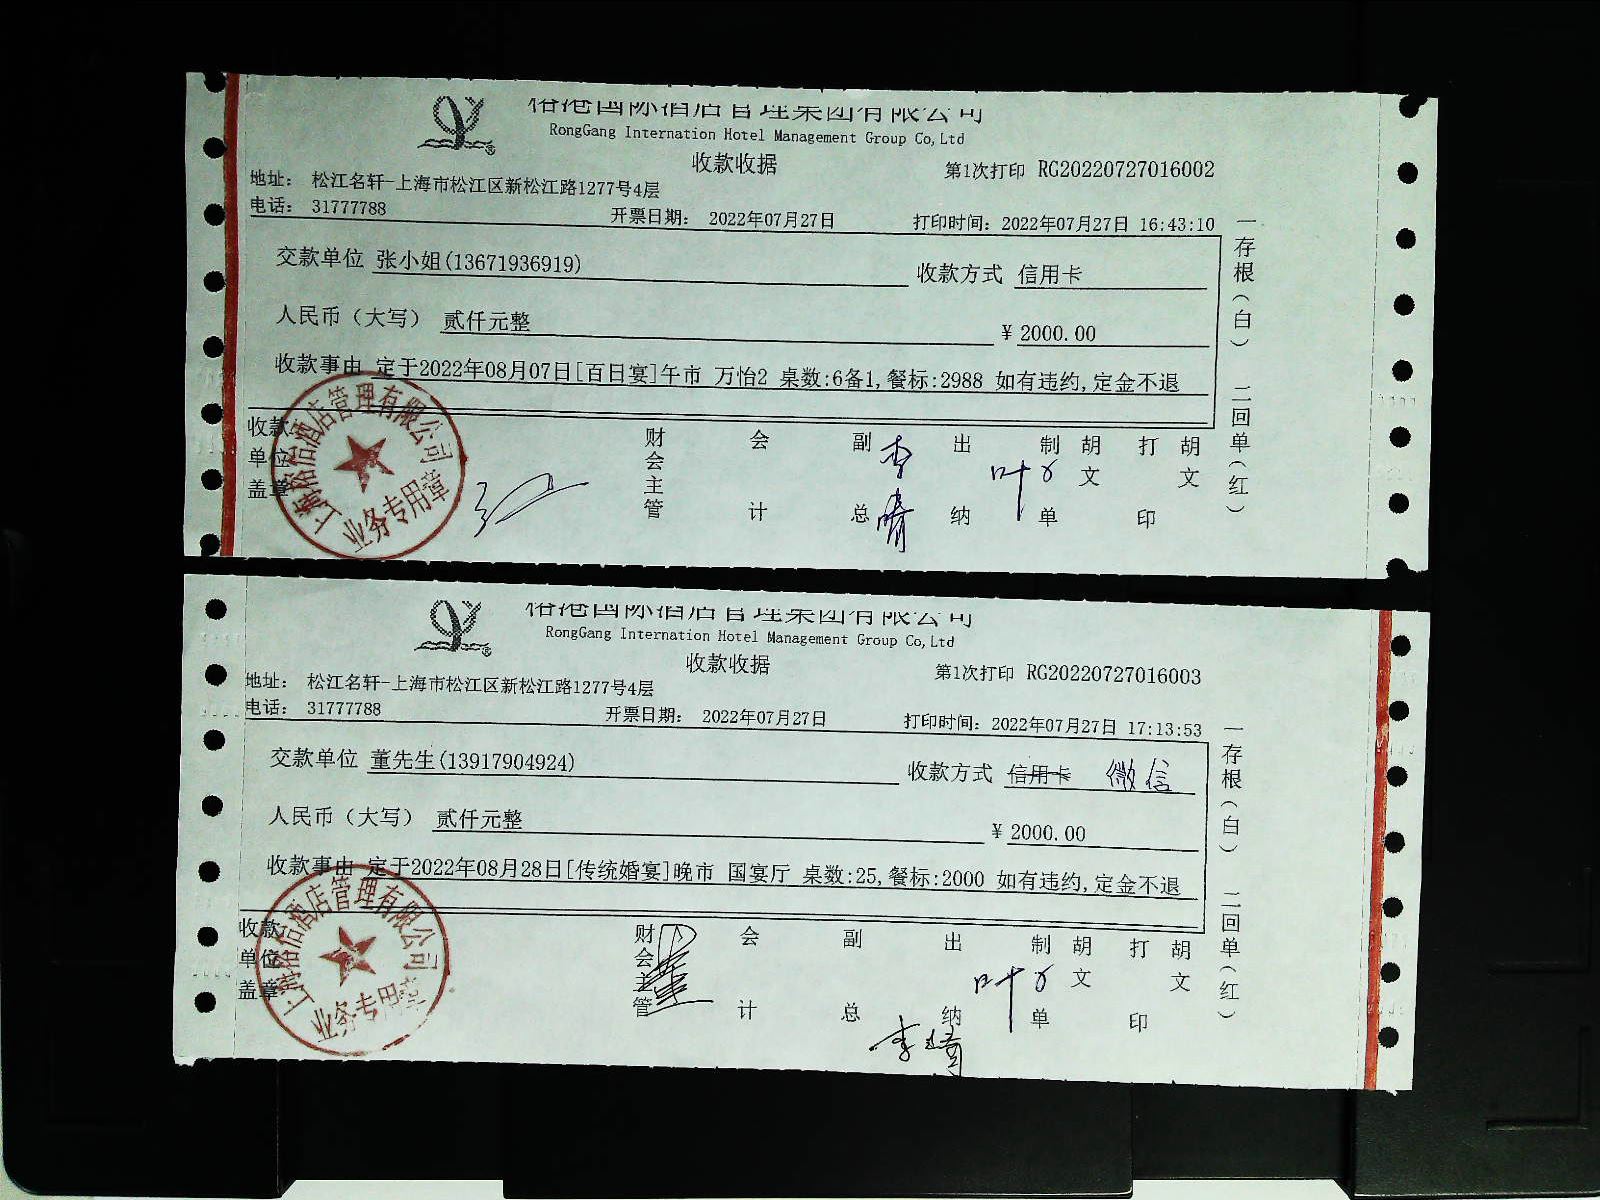 榕港国际酒店管理集团有限公司
RongGang Internation Hotel Management Group Co,Ltd
收款收据
第1次打印 RG20220727016002
地址： 松江名轩-上海市松江区新松江路1277号4层
电话： 31777788
开票日期： 2022年07月27日
打印时间：2022年07月27日 16:43:10
交款单位 张小姐(13671936919)
收款方式 信用卡
人民币（大写） 贰仟元整
¥ 2000.00
收款事由 定于2022年08月07日[百日宴]午市 万怡2 桌数:6备1,餐标:2988 如有违约,定金不退
收款单位盖章
财会主管
会计
副总
李晴
出纳
叶
制单
胡文
打印
胡文
一存根（白） 二回单（红）
酒店管理有限公司
业务专用章
榕港国际酒店管理集团有限公司
RongGang Internation Hotel Management Group Co,Ltd
收款收据
第1次打印 RG20220727016003
地址： 松江名轩-上海市松江区新松江路1277号4层
电话： 31777788
开票日期： 2022年07月27日
打印时间：2022年07月27日 17:13:53
交款单位 董先生(13917904924)
收款方式 信用卡 微信
人民币（大写） 贰仟元整
¥ 2000.00
收款事由 定于2022年08月28日[传统婚宴]晚市 国宴厅 桌数:25,餐标:2000 如有违约,定金不退
收款单位盖章
财会主管
会计
副总
出纳
李晴
叶
制单
胡文
打印
胡文
一存根（白） 二回单（红）
酒店管理有限公司
业务专用章